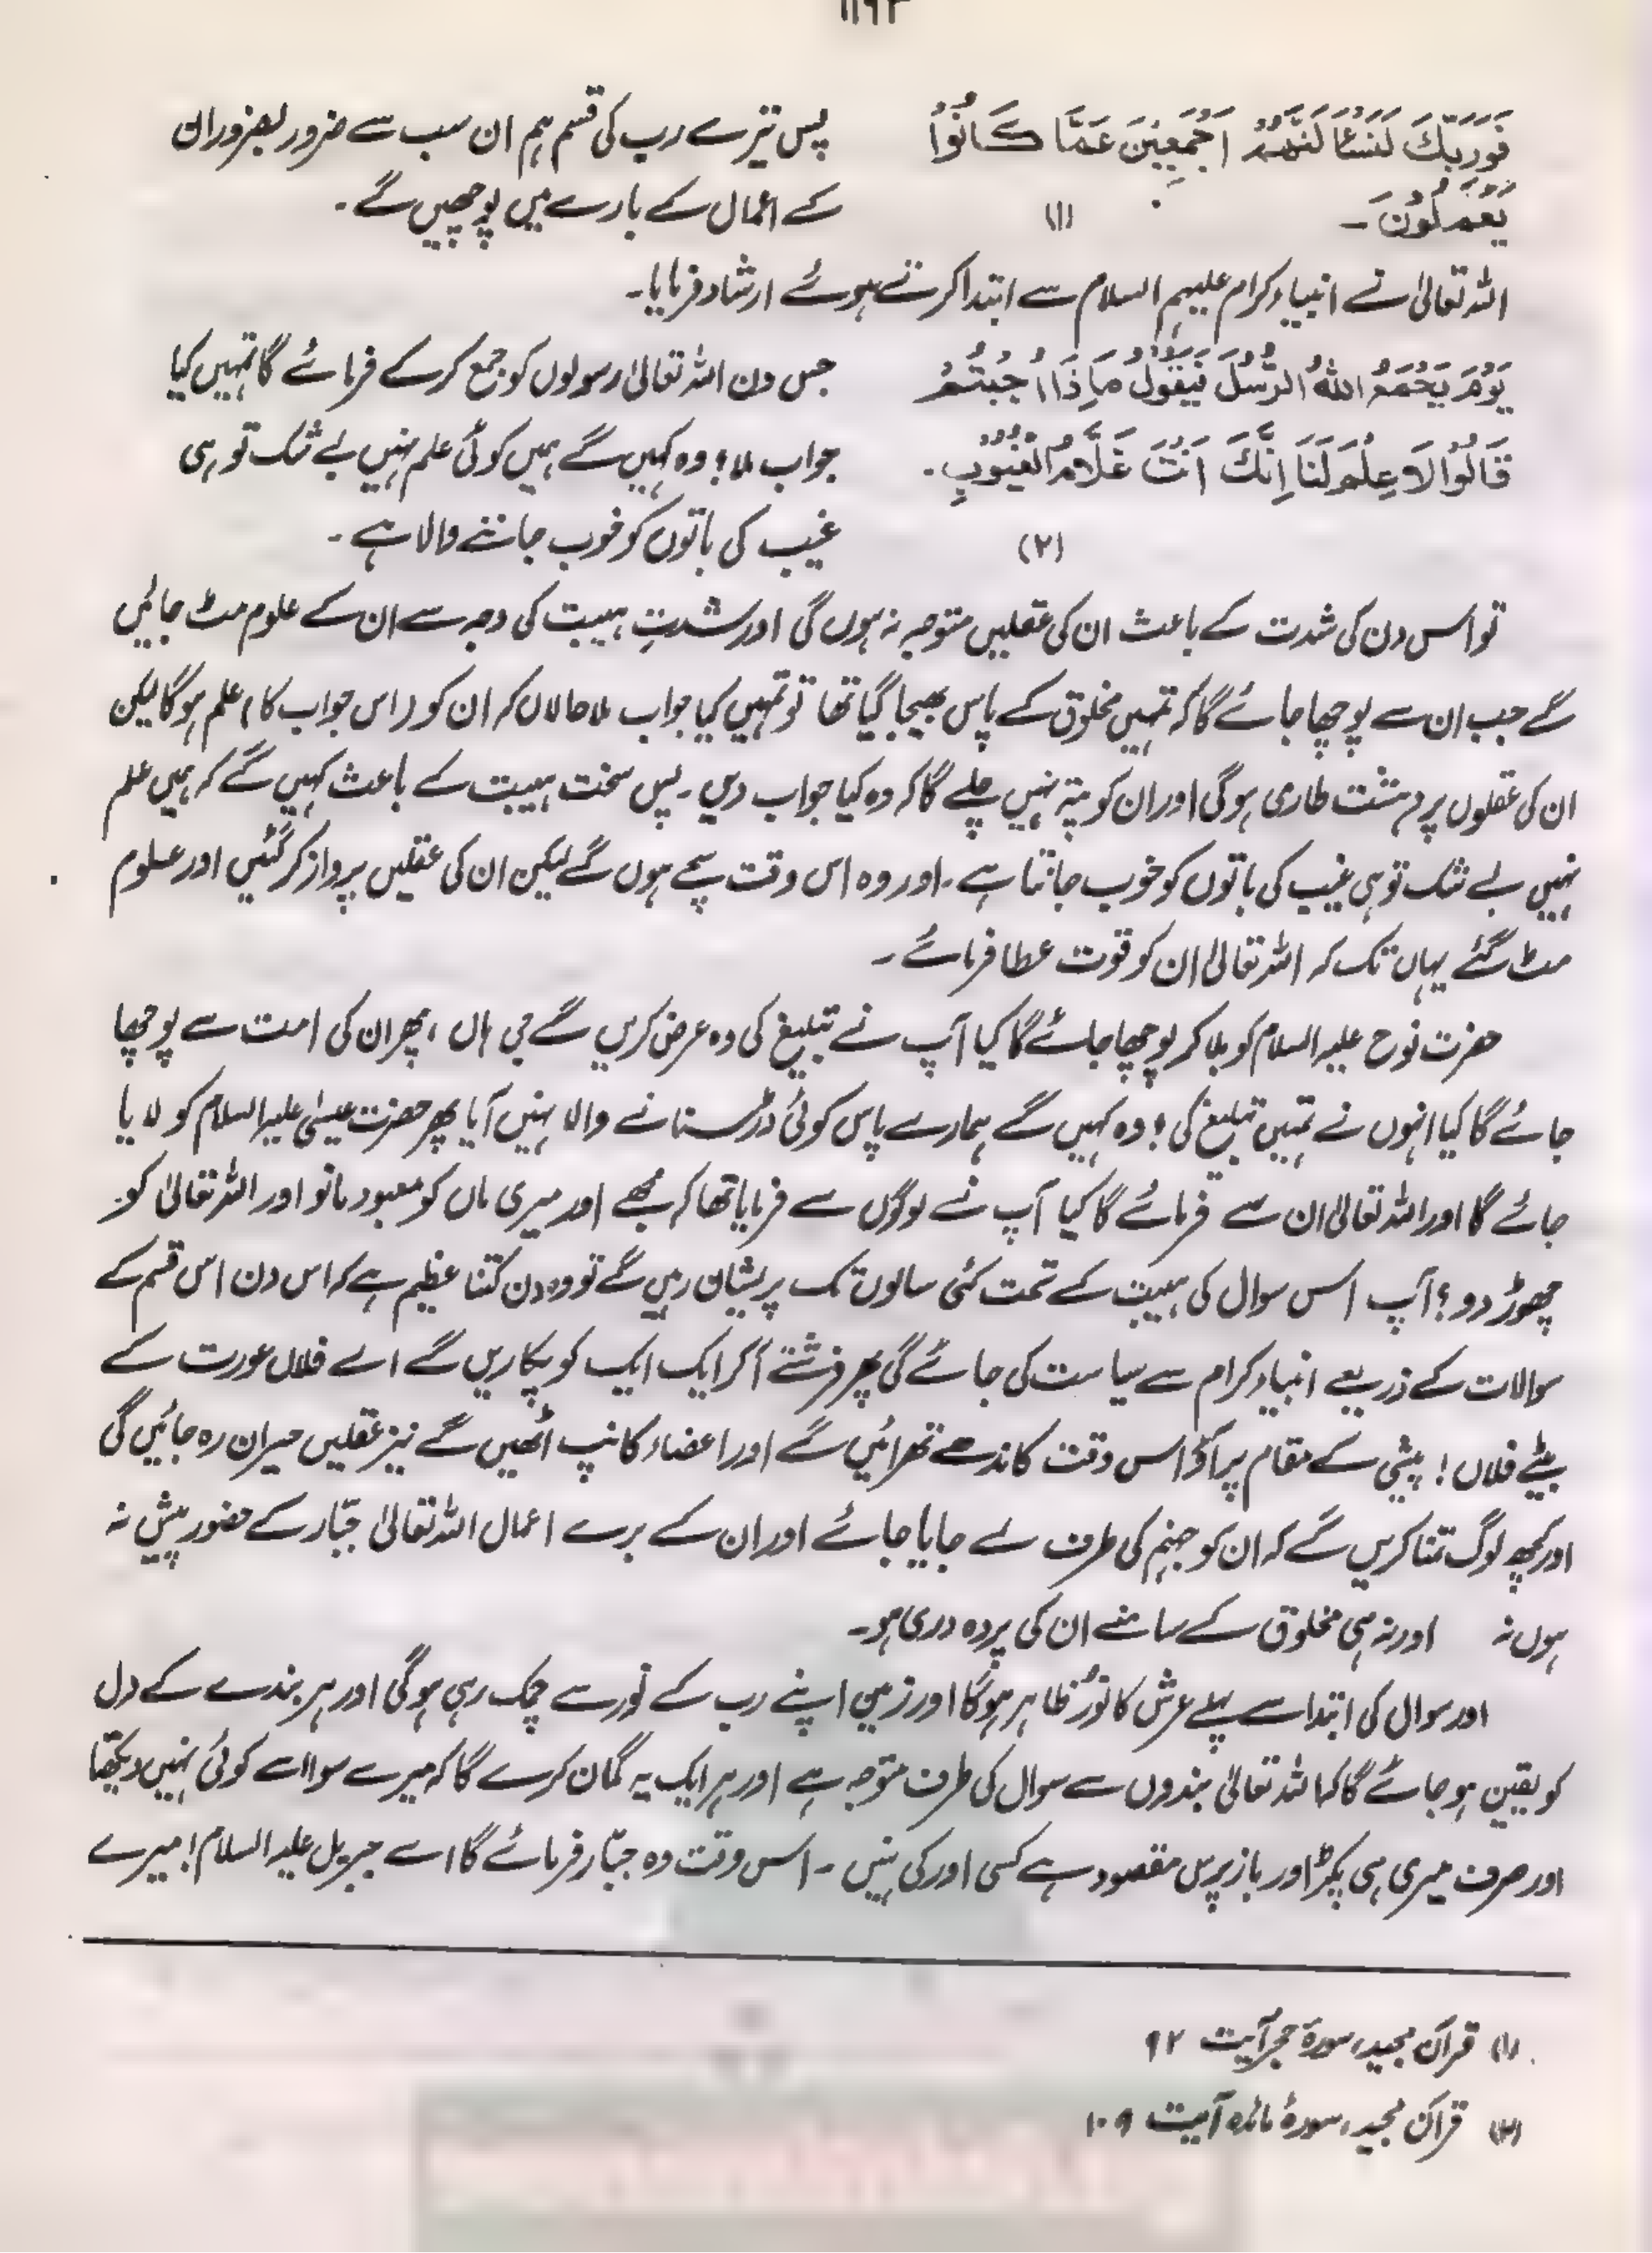 ۱۱۹۳
فَوَرَبِّكَ لَنَسْئَالَنَّهُمْ اَجْمَعِيْنَ عَمَّا كَانُوْا
يَعْمَلُوْنَ ۔ (۱)
پس تیرے رب کی قسم ہم ان سب سے ضرور بضرور ان
کے اعمال کے بارے میں پوچھیں گے ۔
اللہ تعالیٰ نے انبیاء کرام علیہم السلام سے ابتدا کرتے ہوئے ارشاد فرمایا۔
يَوْمَ يَجْمَعُ اللّٰهُ الرُّسُلَ فَيَقُوْلُ مَاذَا اُجِبْتُمْ
قَالُوْا لَا عِلْمَ لَنَا اِنَّكَ اَنْتَ عَلَّامُ الْغُيُوْبِ ۔
(۲)
جس دن اللہ تعالیٰ رسولوں کو جمع کرکے فرمائے گا تمہیں کیا
جواب ملا؟ وہ کہیں گے ہمیں کوئی علم نہیں بے شک تو ہی
غیب کی باتوں کو خوب جاننے والا ہے ۔
تو اس دن کی شدت کے باعث ان کی عقلیں متوجہ نہ ہوں گی اور شدتِ ہیبت کی وجہ سے ان کے علوم مٹ جائیں
گے جب ان سے پوچھا جائے گا کہ تمہیں مخلوق کے پاس بھیجا گیا تھا تو تمہیں کیا جواب ملا حالاں کہ ان کو (اس جواب کا) علم ہوگا لیکن
ان کی عقلوں پر دہشت طاری ہوگی اور ان کو پتہ نہیں چلے گا کہ وہ کیا جواب دیں ۔ پس سخت ہیبت کے باعث کہیں گے کہ ہمیں علم
نہیں بے شک تو ہی غیب کی باتوں کو خوب جانتا ہے ۔ اور وہ اس وقت سچے ہوں گے لیکن ان کی عقلیں پرواز کر گئیں اور علوم
مٹ گئے یہاں تک کہ اللہ تعالیٰ ان کو قوت عطا فرمائے ۔
حضرت نوح علیہ السلام کو بلا کر پوچھا جائے گا کیا آپ نے تبلیغ کی وہ عرض کریں گے جی ہاں ، پھر ان کی امت سے پوچھا
جائے گا کیا انہوں نے تمہیں تبلیغ کی؟ وہ کہیں گے ہمارے پاس کوئی ڈر سنانے والا نہیں آیا پھر حضرت عیسیٰ علیہ السلام کو لایا
جائے گا اور اللہ تعالیٰ ان سے فرمائے گا کیا آپ نے لوگوں سے فرمایا تھا کہ مجھے اور میری ماں کو معبود مانو اور اللہ تعالیٰ کو
چھوڑ دو؟ آپ اس سوال کی ہیبت کے تحت کئی سالوں تک پریشان رہیں گے تو وہ دن کتنا عظیم ہے کہ اس دن اس قسم کے
سوالات کے ذریعے انبیاء کرام سے سیاست کی جائے گی پھر فرشتے آکر ایک ایک کو پکاریں گے اے فلاں عورت کے
بیٹے فلاں! پیشی کے مقام پر آؤ اس وقت کاندھے تھرائیں گے اور اعضاء کانپ اٹھیں گے نیز عقلیں حیران رہ جائیں گی
اور کچھ لوگ تمنا کریں گے کہ ان کو جہنم کی طرف لے جایا جائے اور ان کے برے اعمال اللہ تعالیٰ جبّار کے حضور پیش نہ
ہوں نہ اور نہ ہی مخلوق کے سامنے ان کی پردہ دری ہو۔
اور سوال کی ابتدا سے پہلے عرش کا نور ظاہر ہوگا اور زمین اپنے رب کے نور سے چمک رہی ہوگی اور ہر بندے کے دل
کو یقین ہو جائے گا کہ اللہ تعالیٰ بندوں سے سوال کی طرف متوجہ ہے اور ہر ایک یہ گمان کرے گا کہ میرے سوا اسے کوئی نہیں دیکھتا
اور صرف میری ہی پکڑ اور باز پرس مقصود ہے کسی اور کی نہیں ۔ اس وقت وہ جبّار فرمائے گا اے جبریل علیہ السلام! میرے
(۱) قرآن مجید، سورۂ حجر آیت ۹۲
(۲) قرآن مجید، سورۂ مائدہ آیت ۱۰۹